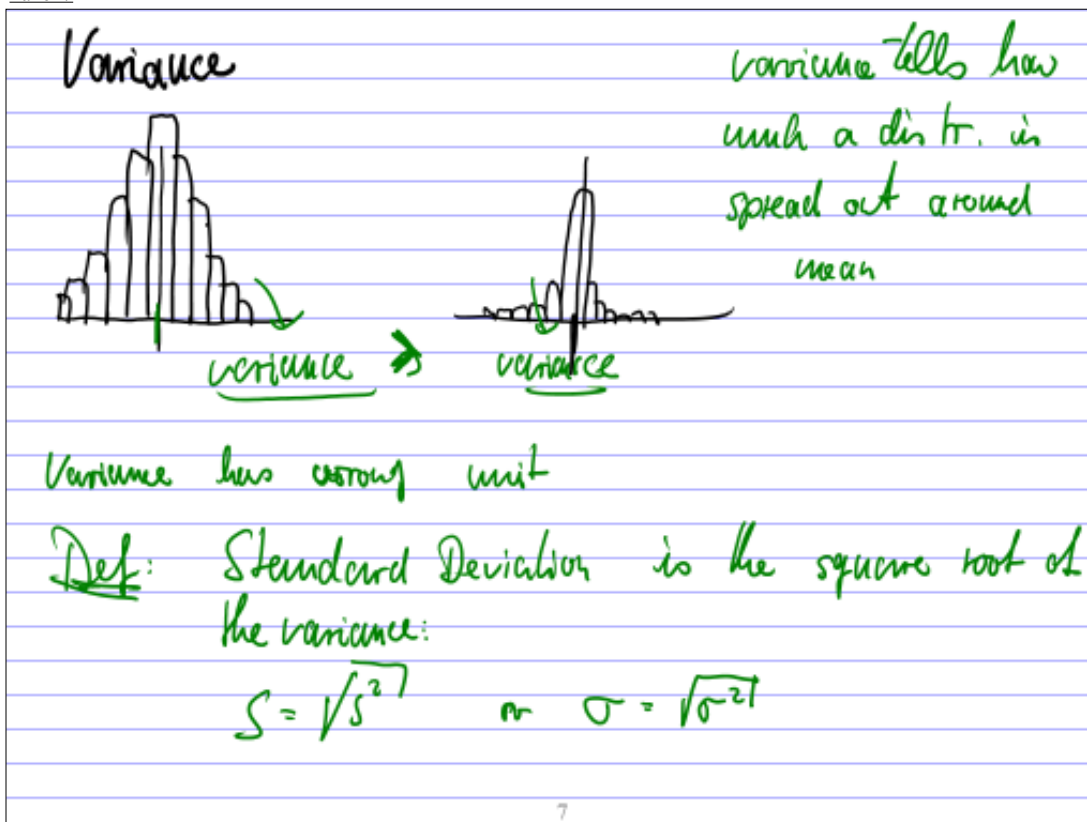 Variance
variance tells how
much a distr. is
spread out around
mean
variance > variance
Variance has wrong unit
Def: Standard Deviation is the square root of
the variance:
S = √s² or σ = √σ²
7